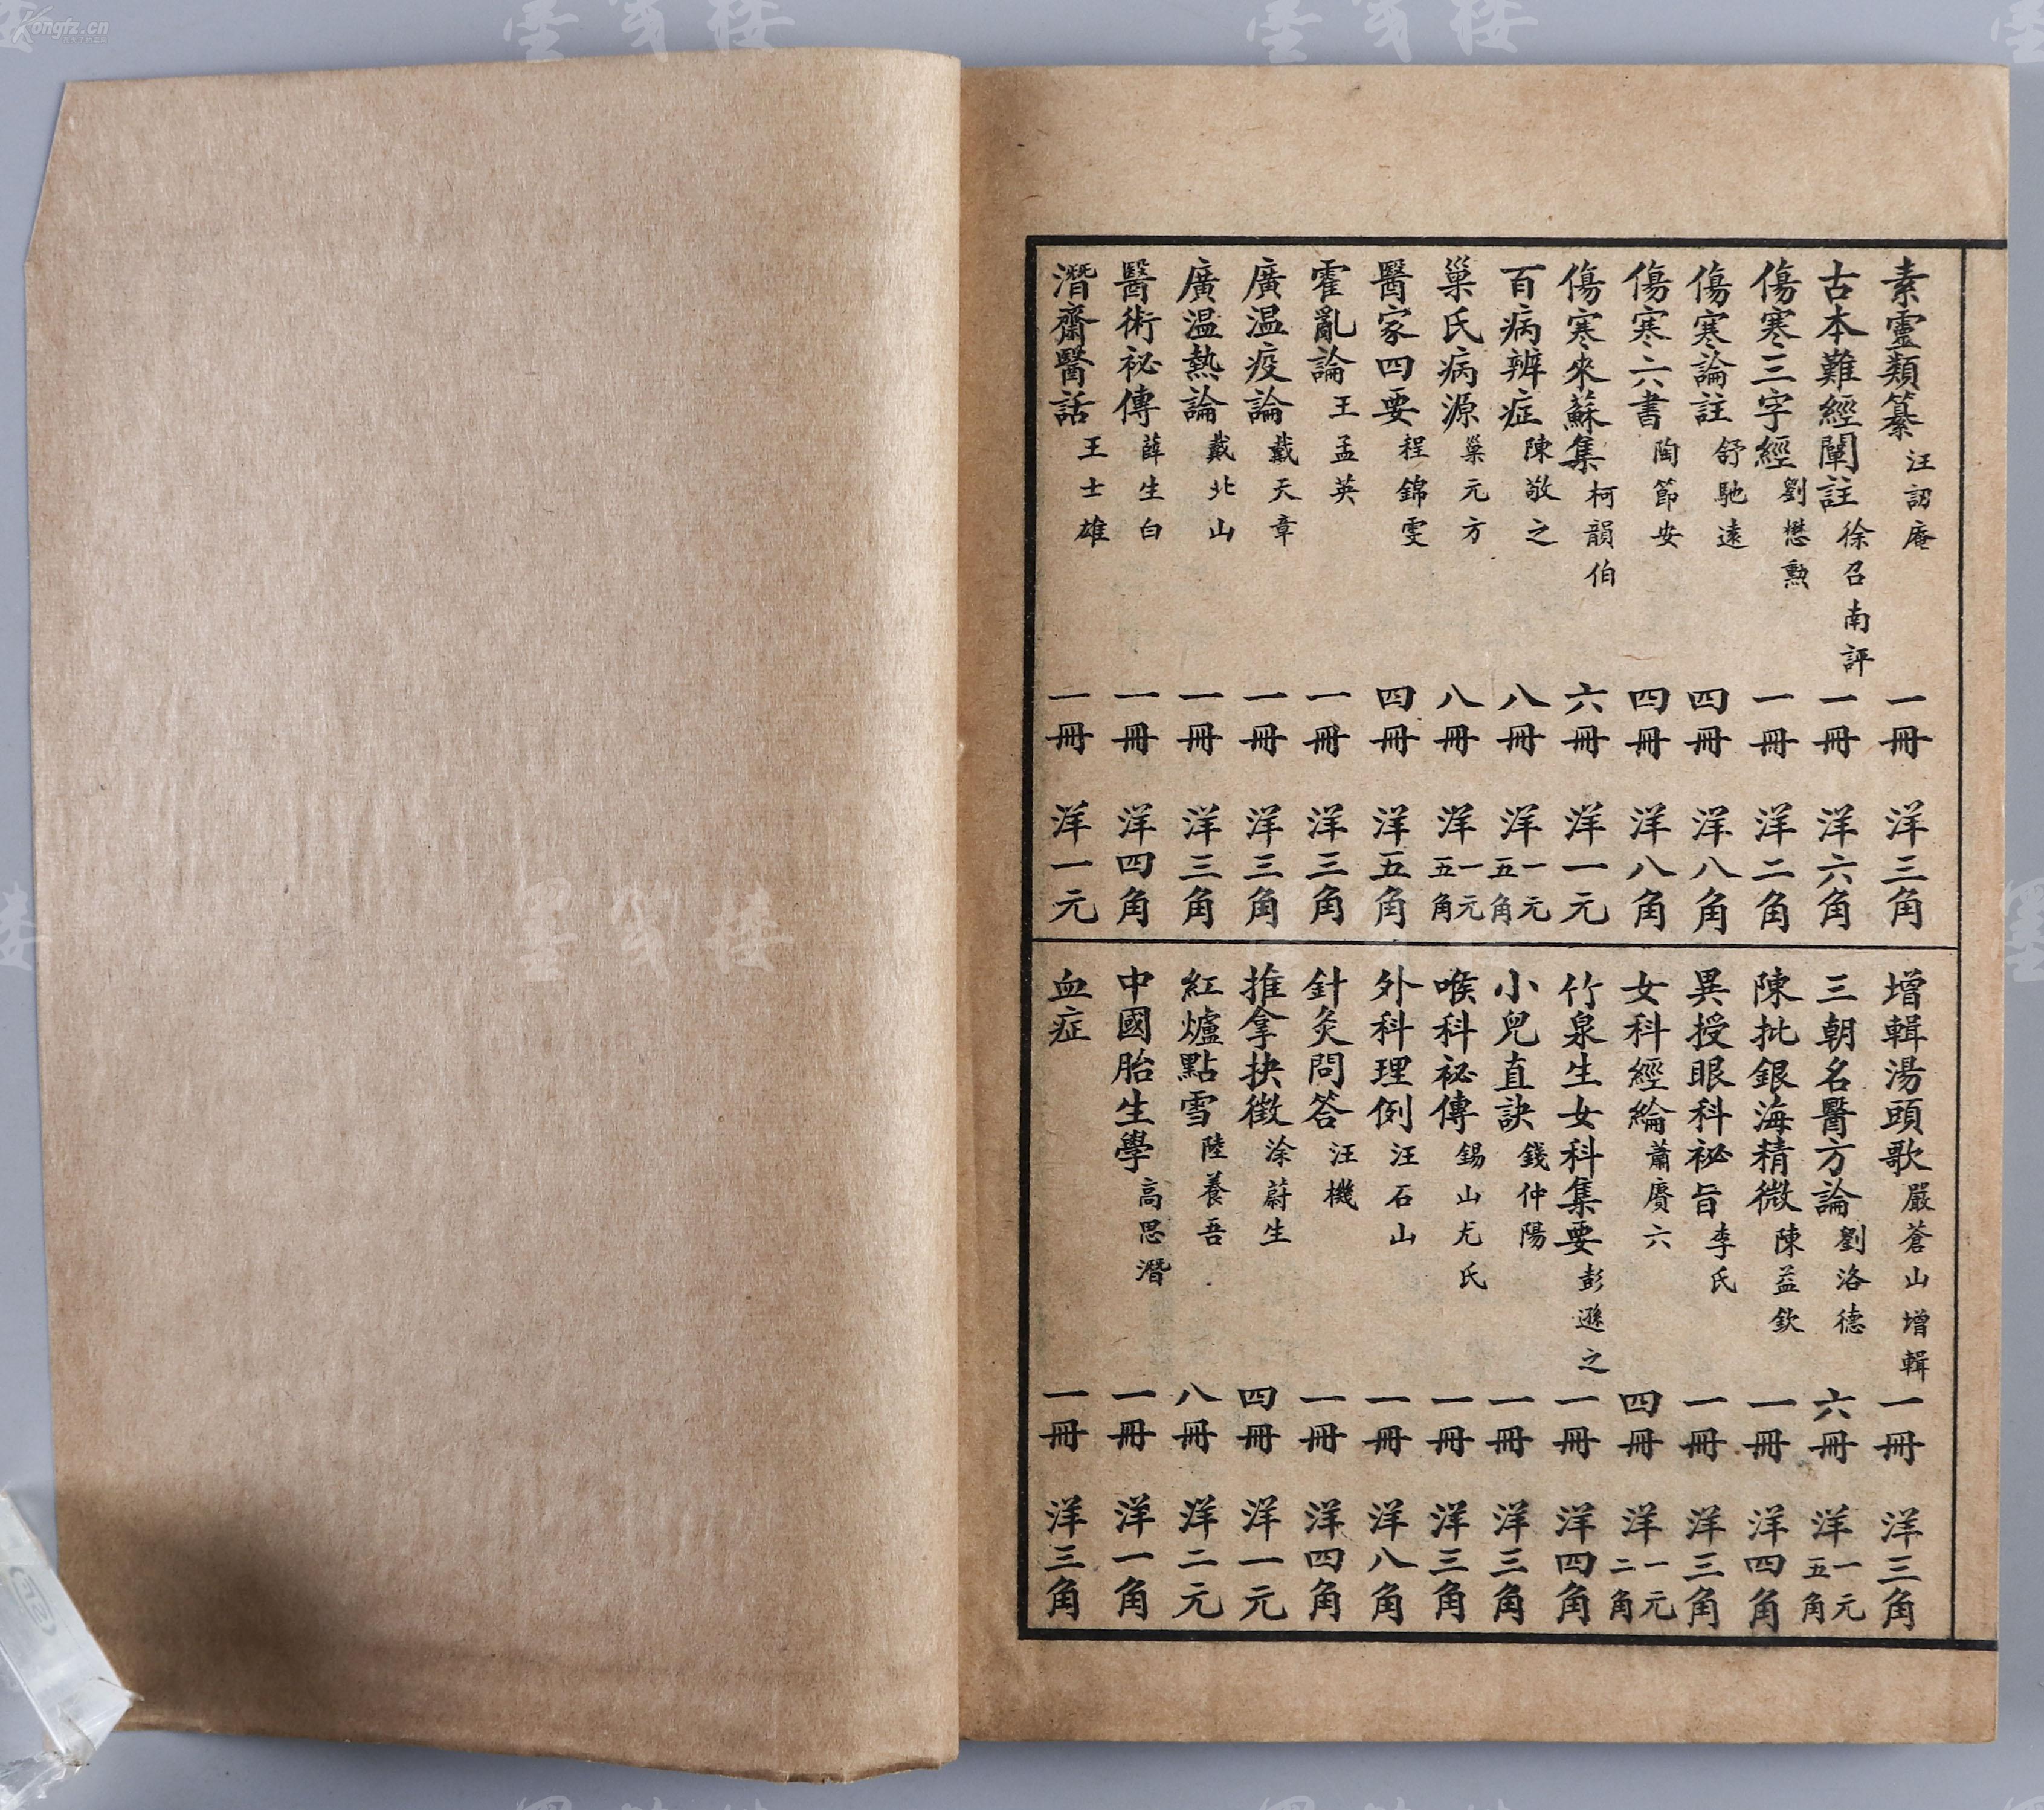 素靈類纂 汪訒庵 一冊 洋三角
古本難經闡註 徐召南評 一冊 洋六角
傷寒三字經 劉懋勲 一冊 洋二角
傷寒論註 舒馳遠 四冊 洋八角
傷寒六書 陶節安 四冊 洋八角
傷寒來蘇集 柯韻伯 六冊 洋一元
百病辨症 陳敬之 八冊 洋一元五角
巢氏病源 巢元方 八冊 洋一元五角
醫家四要 程錦雯 四冊 洋五角
霍亂論 王孟英 一冊 洋三角
廣温疫論 戴天章 一冊 洋三角
廣温熱論 戴北山 一冊 洋三角
醫術祕傳 薛生白 一冊 洋四角
潛齋醫話 王士雄 一冊 洋一元
增輯湯頭歌 嚴蒼山增輯 一冊 洋三角
三朝名醫方論 劉洛德 六冊 洋一元五角
陳批銀海精微 陳益欽 一冊 洋四角
異授眼科祕旨 李氏 一冊 洋三角
女科經綸 蕭賡六 四冊 洋一元二角
竹泉生女科集要 彭遜之 一冊 洋四角
小兒直訣 錢仲陽 一冊 洋三角
喉科祕傳 錫山尤氏 一冊 洋三角
外科理例 汪石山 一冊 洋八角
針灸問答 汪機 一冊 洋四角
推拿抉微 涂蔚生 四冊 洋一元
紅爐點雪 陸養吾 八冊 洋二元
中國胎生學 高思潛 一冊 洋一角
血症 一冊 洋三角
Kongfz.cn
墨笺楼